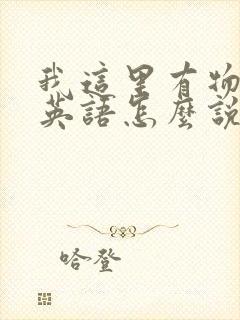 我這里有物
英語怎麼說
哈登